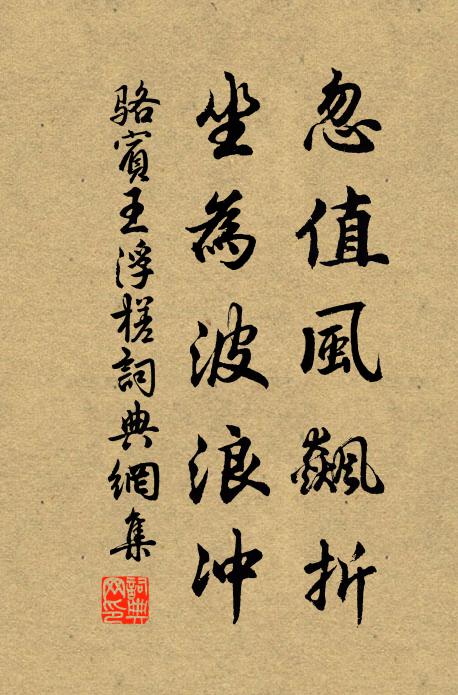 忽值風飇折
坐為波浪冲
駱賓王浮槎詞典網集
詞典网印